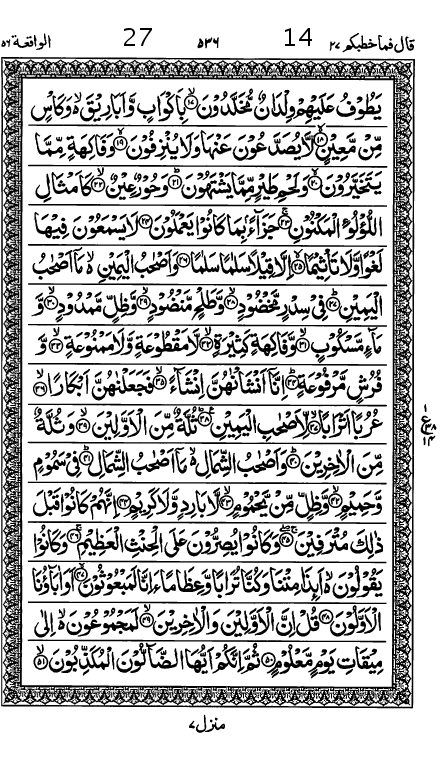 قال فماخطبكم ٢٧ 14 ٥٣٦ 27 الواقعة ٥٦
يَطُوْفُ عَلَيْهِمْ وِلْدَانٌ مُّخَلَّدُوْنَ ۙ﴿۱۷﴾ بِاَكْوَابٍ وَّاَبَارِيْقَ ۙ۬ وَكَاْسٍ
مِّنْ مَّعِيْنٍ ۙ﴿۱۸﴾ لَّا يُصَدَّعُوْنَ عَنْهَا وَلَا يُنْزِفُوْنَ ۙ﴿۱۹﴾ وَفَاكِهَةٍ مِّمَّا
يَتَخَيَّرُوْنَ ۙ﴿۲۰﴾ وَلَحْمِ طَيْرٍ مِّمَّا يَشْتَهُوْنَ ؕ﴿۲۱﴾ وَحُوْرٌ عِيْنٌ ۙ﴿۲۲﴾ كَاَمْثَالِ
اللُّؤْلُوَٴِ الْمَكْنُوْنِ ۚ﴿۲۳﴾ جَزَآءًۢ بِمَا كَانُوْا يَعْمَلُوْنَ ﴿۲۴﴾ لَا يَسْمَعُوْنَ فِيْهَا
لَغْوًا وَّلَا تَاْثِيْمًا ۙ﴿۲۵﴾ اِلَّا قِيْلًا سَلٰمًا سَلٰمًا ﴿۲۶﴾ وَاَصْحٰبُ الْيَمِيْنِ ۙ۬ مَاۤ اَصْحٰبُ
الْيَمِيْنِ ؕ﴿۲۷﴾ فِيْ سِدْرٍ مَّخْضُوْدٍ ۙ﴿۲۸﴾ وَّطَلْحٍ مَّنْضُوْدٍ ۙ﴿۲۹﴾ وَّظِلٍّ مَّمْدُوْدٍ ۙ﴿۳۰﴾ وَّ
مَآءٍ مَّسْكُوْبٍ ۙ﴿۳۱﴾ وَّفَاكِهَةٍ كَثِيْرَةٍ ۙ﴿۳۲﴾ لَّا مَقْطُوْعَةٍ وَّلَا مَمْنُوْعَةٍ ۙ﴿۳۳﴾ وَّ
فُرُشٍ مَّرْفُوْعَةٍ ؕ﴿۳۴﴾ اِنَّاۤ اَنْشَاْنٰهُنَّ اِنْشَآءً ۙ﴿۳۵﴾ فَجَعَلْنٰهُنَّ اَبْكَارًا ۙ﴿۳۶﴾
عُرُبًا اَتْرَابًا ۙ﴿۳۷﴾ لِّاَصْحٰبِ الْيَمِيْنِ ؕ﴿۳۸﴾ ثُلَّةٌ مِّنَ الْاَوَّلِيْنَ ۙ﴿۳۹﴾ وَثُلَّةٌ
مِّنَ الْاٰخِرِيْنَ ؕ﴿۴۰﴾ وَاَصْحٰبُ الشِّمَالِ ۙ۬ مَاۤ اَصْحٰبُ الشِّمَالِ ؕ﴿۴۱﴾ فِيْ سَمُوْمٍ
وَّحَمِيْمٍ ۙ﴿۴۲﴾ وَّظِلٍّ مِّنْ يَّحْمُوْمٍ ۙ﴿۴۳﴾ لَّا بَارِدٍ وَّلَا كَرِيْمٍ ﴿۴۴﴾ اِنَّهُمْ كَانُوْا قَبْلَ
ذٰلِكَ مُتْرَفِيْنَ ۚۖ﴿۴۵﴾ وَكَانُوْا يُصِرُّوْنَ عَلَى الْحِنْثِ الْعَظِيْمِ ۚ﴿۴۶﴾ وَكَانُوْا
يَقُوْلُوْنَ ۙ۬ اَئِذَا مِتْنَا وَكُنَّا تُرَابًا وَّعِظَامًا ءَاِنَّا لَمَبْعُوْثُوْنَ ۙ﴿۴۷﴾ اَوَاٰبَآؤُنَا
الْاَوَّلُوْنَ ﴿۴۸﴾ قُلْ اِنَّ الْاَوَّلِيْنَ وَالْاٰخِرِيْنَ ۙ﴿۴۹﴾ لَمَجْمُوْعُوْنَ ۙ۬ اِلٰى
مِيْقَاتِ يَوْمٍ مَّعْلُوْمٍ ﴿۵۰﴾ ثُمَّ اِنَّكُمْ اَيُّهَا الضَّآلُّوْنَ الْمُكَذِّبُوْنَ ۙ﴿۵۱﴾
١
ع ٣٨
١٤
منزل ٧